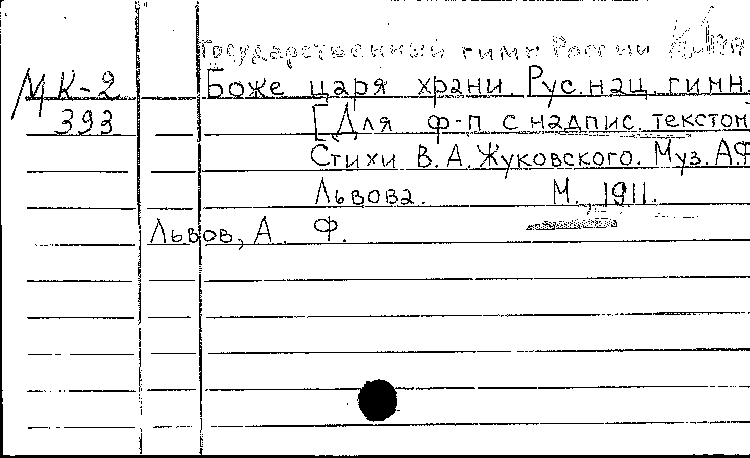 Государственный гимн России
МК-2 Боже царя храни. Рус. нац. гимн.
393 [Для ф-п с надпис. текстом
Стихи В. А. Жуковского. Муз. А.Ф
Львова. М., 1911.
Львов, А. Ф.